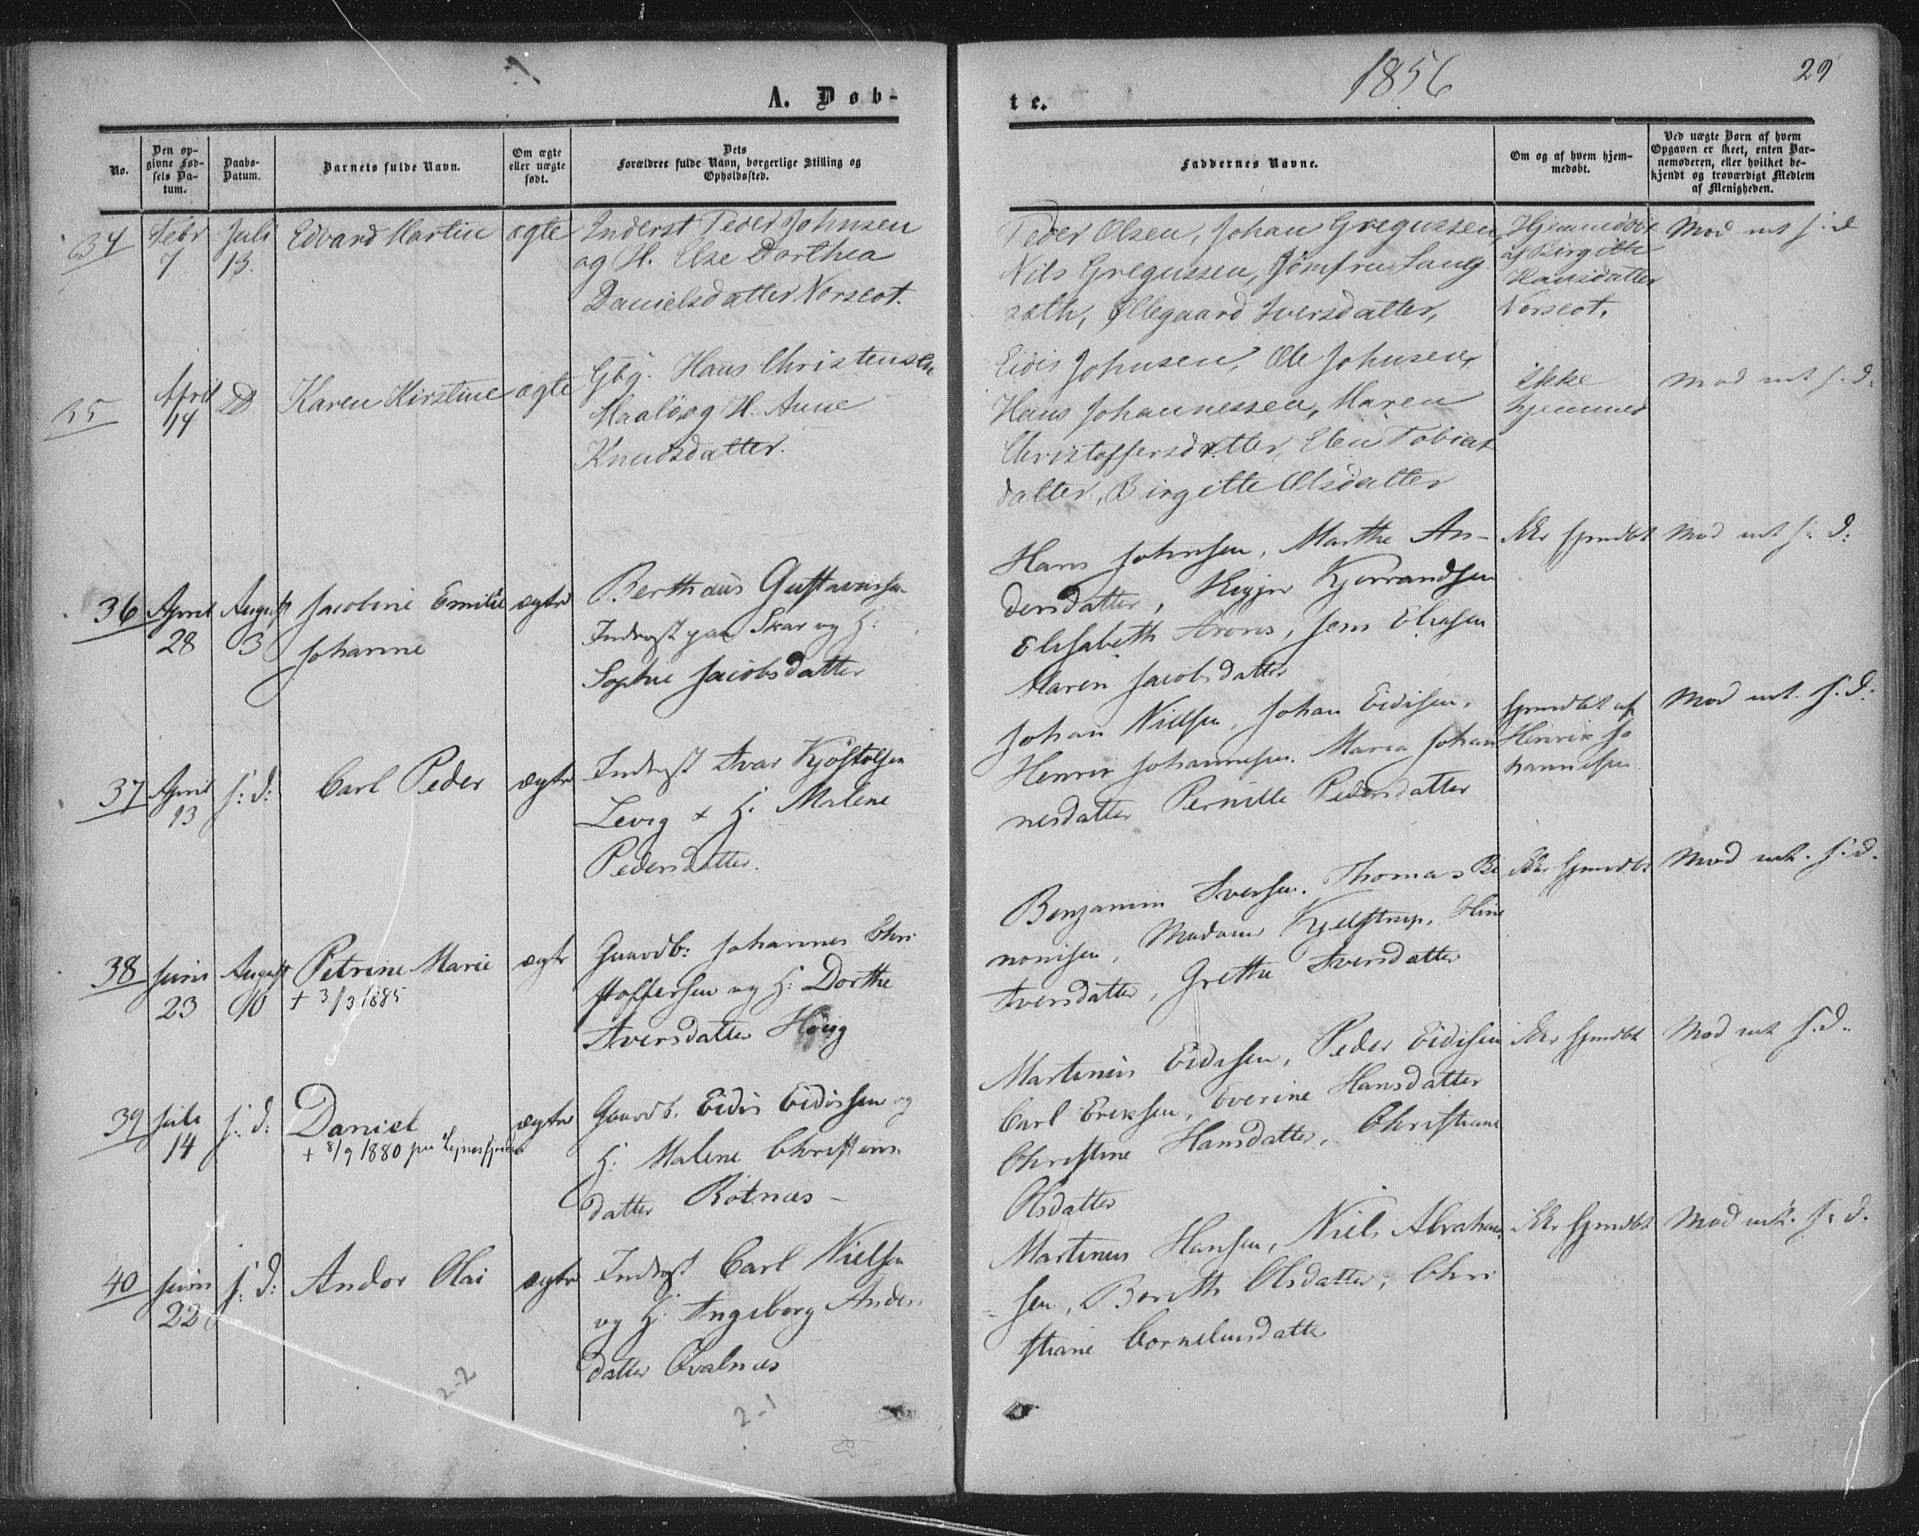 A. Døb-
te.
1856
29
No.
Den op-
givne Fød-
sels Da-
tum.
Daabs-
Datum.
Barnets fulde Navn.
Om ægte
eller uægte
født.
Dets
Forældres fulde Navn, borgerlige Stilling og
Opholdssted.
Faddernes Navne.
Om og af hvem hjem-
medøbt.
Ved uægte Børn af hvem
Opgaven er skeet, enten Bar-
nemoderen, eller hvilket be-
kjendt og troværdigt Medlem
af Menigheden.
34
Febr
7
Juli
13.
Edvard Martin
ægte
Inderst Peder Johnsen
og H. Else Dorthea
Danielsdatter Norseot.
Peder Olsen, Johan Gregussen
Nils Gregussen, Jomfru Lang
seth, Øllegaard Iversdatter,
Hjemmedøbt
af Birgitte
Hansdatter
Norseot.
Mod. mt s. d
35
April
14
D.
Karen Kirstine
ægte
Gbg. Hans Christensen
Maaløs og H. Anne
Knudsdatter.
Eidis Johnsen, Ole Johnsen,
Hans Johannessen, Maren
Christoffersdatter, Elen Tobias
datter, Birgitte Olsdatter
Ikke
hjemmed
Mod mt s. d.
36
April
28
August
3
Jacobine Emilie
Johanne
ægte
Berthæus Gustavussen
Inderst paa Skar og H:
Sophie Jacobsdatter
Hans Johnsen, Marthe An-
dersdatter, Kjerrandsen
Elisabeth Arons, Jens Eliasen
Maren Jacobsdatter
Ikke hjemdbt
Mod mt s: d:
37
April
13
s: d:
Carl Peder
ægte
Inderst Ivar Kjøstolsen
Levig + H: Malene
Pedersdatter.
Johan Nielsen, Johan Eidisen,
Henrik Johannesen. Maria Johan
nesdatter Pernille Pedersdatter
hjemdbt af
Henrik Jo
hannesen
Mod mt. s. d.
38
Juni
23
August
10
Petrine Marie
+ 3/3 1885
ægte
Gaardb: Johannes Chri
stoffersen og H: Dorthe
Iversdatter Høvig
Benjamin Iversen. Thomas Be
nonisen, Madame Kjelstrup,
Iversdatter, Grethe Iversdatter
Ikke hjemdbt
Mod mt. s: d.
39
Juli
14
s: d:
Daniel
+ 8/9 1880 paa
ægte
Gaardb. Eidis Eidissen og
H: Malene Christens
datter Rotnæs -
Martinus Eidesen, Peder Eidisen
Carl Eriksen, Everine Hansdatter
Christine Hansdatter, Christiane
Olsdatter
Ikke hjemdbt
Mod mt s. d.
40
Juni
22
s: d:
Andor Olai
ægte
Inderst Carl Nielsen
og H: Ingeborg Anders
datter Qvalnæs
Martinus Hansen, Niels Abraham
sen, Bereth Olsdatter, Chri
stiane Corneliusdatter
ikke hjemdbt
Mod mt. s: d.
2-2
2-1